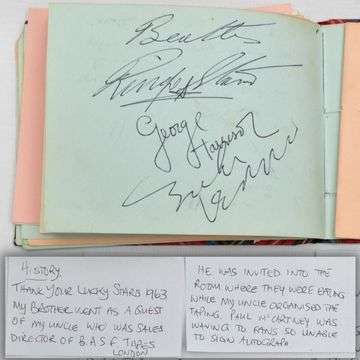 Beatles
Ringo Starr
George
Harrison
John
Lennon
HISTORY
THANK YOUR LUCKY STARS 1963
MY BROTHER WENT AS A GUEST
OF MY UNCLE WHO WAS SALES
DIRECTOR OF B A S F TAPES
LONDON
HE WAS INVITED INTO THE
ROOM WHERE THEY WERE EATING
WHILE MY UNCLE ORGANISED THE
TAPING. PAUL McCARTNEY WAS
WAVING TO FANS SO UNABLE
TO SIGN AUTOGRAPH